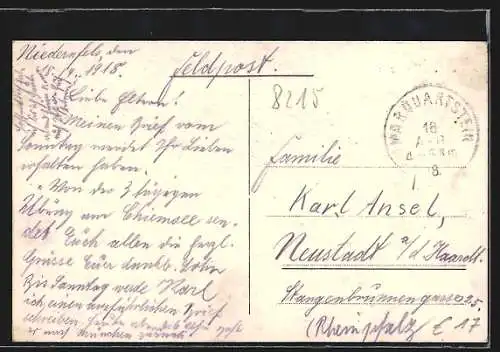 Niedernfels, den
15./4. 1918.
Feldpost.
Liebe Eltern!
Meinen Brief vom
Sonntag werdet Ihr Lieben
erhalten haben.
Von der 3 tägigen
Übung am Chiemsee sen-
det Euch allen die herzl.
Grüsse Euer dankb. Sohn
Bis Sonntag werde Karl
ich einen ausführlichen Brief
schreiben. Heute abend
er nach München zurück
8215
MARQUARTSTEIN
16
8.
Familie
Karl Ansel,
Neustadt a/d Haardt.
Stangenbrunnengasse 25
(Rheinpfalz)
€ 17